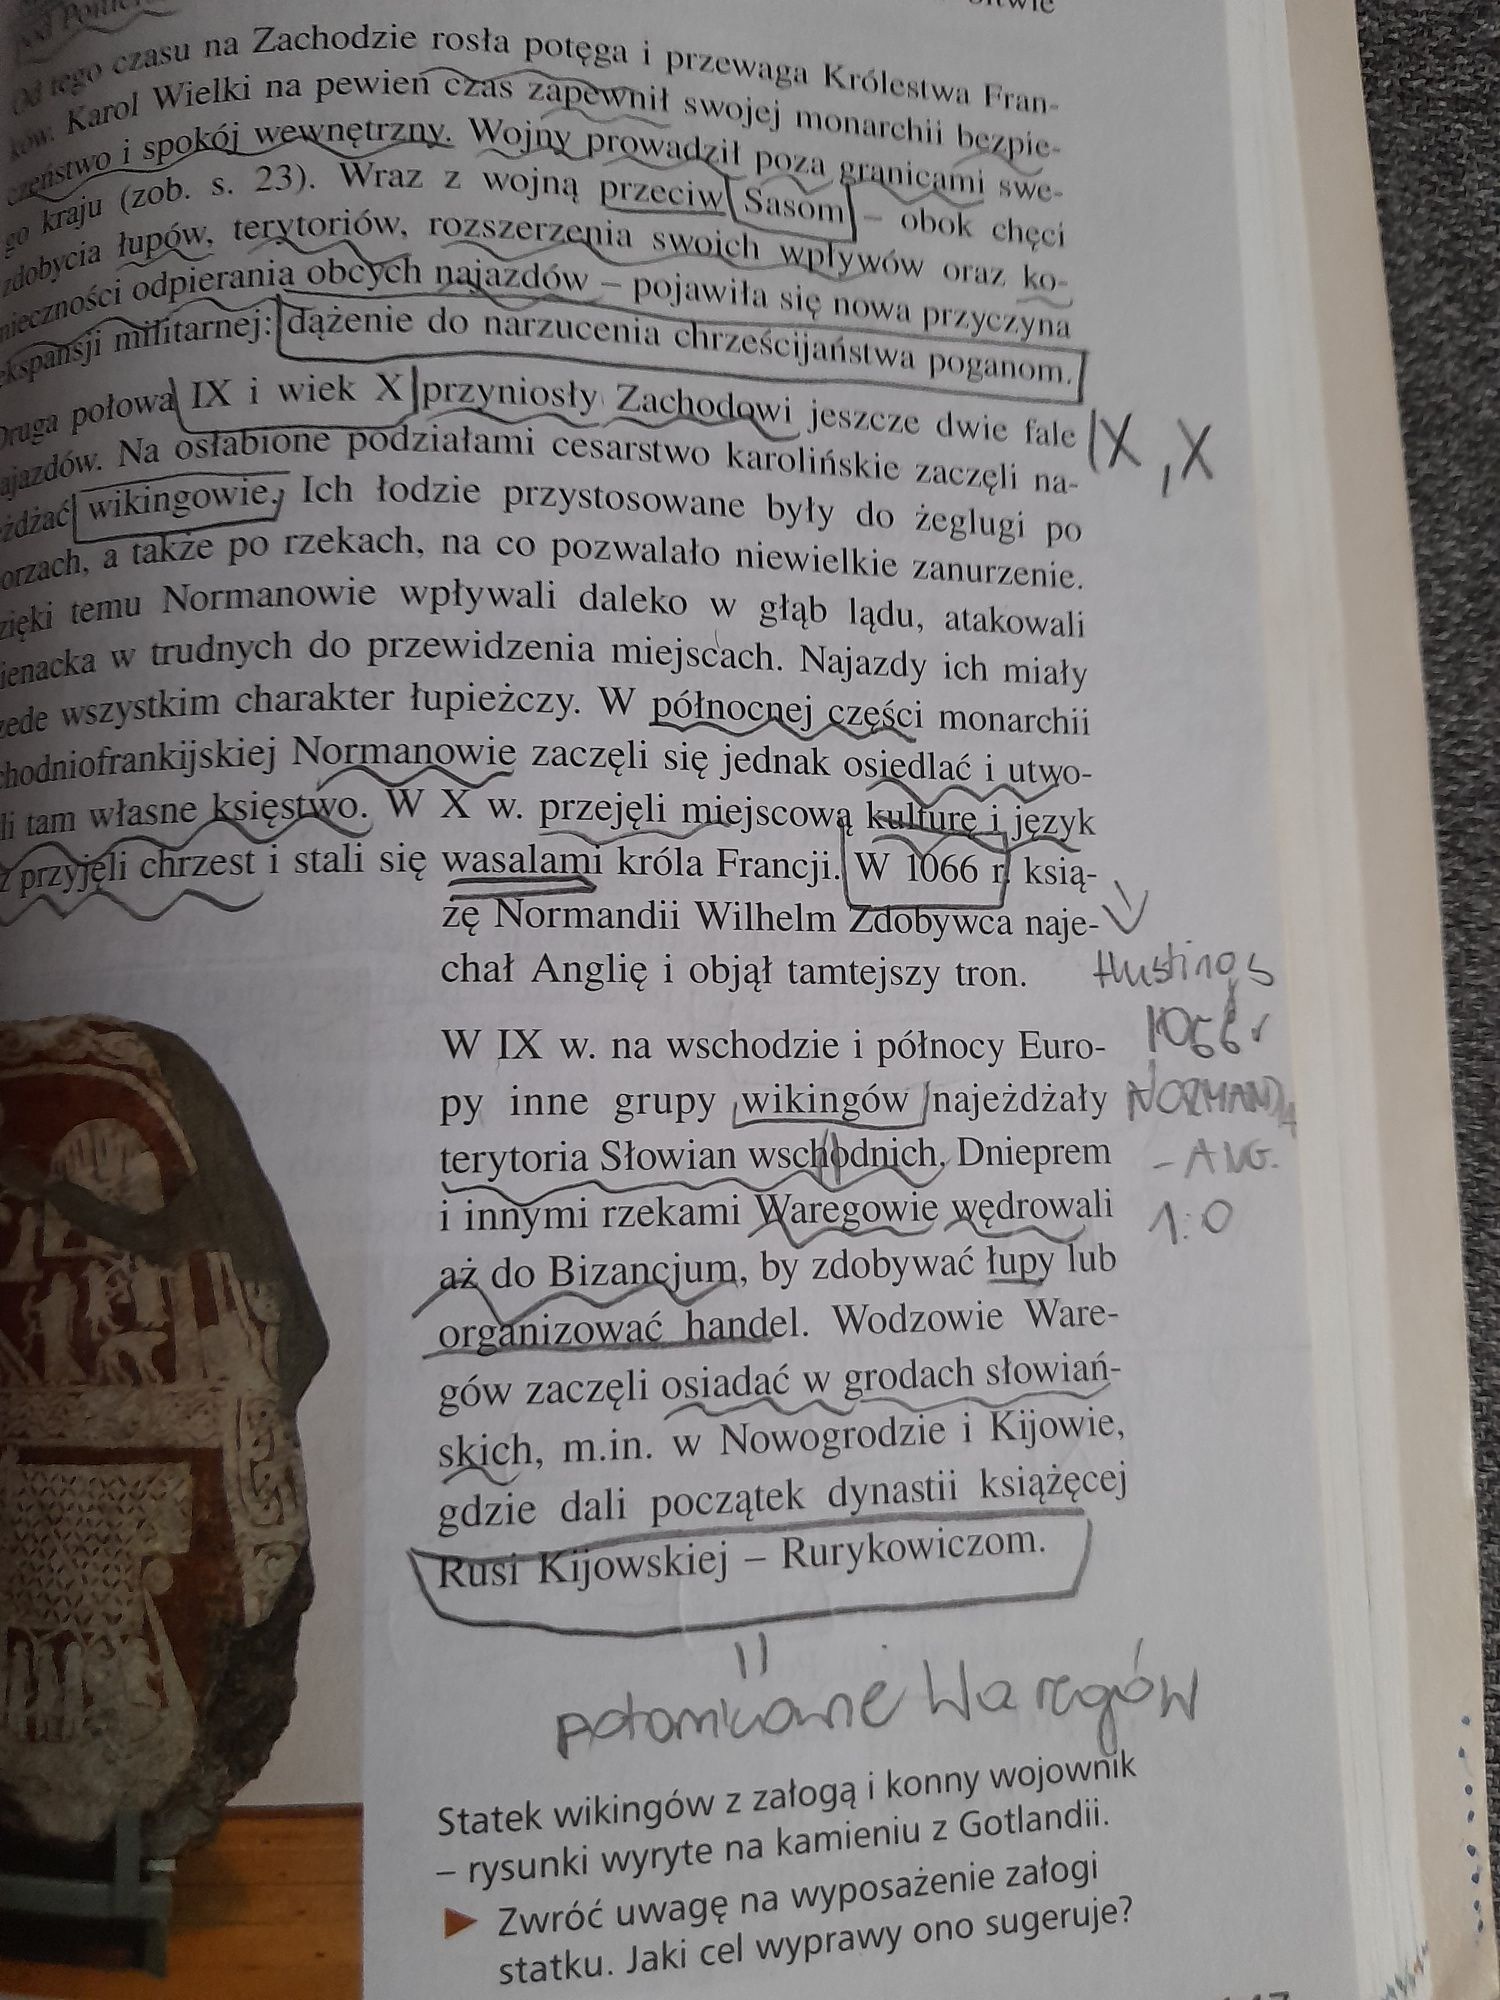 Od tego czasu na Zachodzie rosła potęga i przewaga Królestwa Fran-
ków. Karol Wielki na pewien czas zapewnił swojej monarchii bezpie-
czeństwo i spokój wewnętrzny. Wojny prowadził poza granicami swe-
go kraju (zob. s. 23). Wraz z wojną przeciw Sasom – obok chęci
zdobycia łupów, terytoriów, rozszerzenia swoich wpływów oraz ko-
nieczności odpierania obcych najazdów – pojawiła się nowa przyczyna
ekspansji militarnej: dążenie do narzucenia chrześcijaństwa poganom.
Druga połowa IX i wiek X przyniosły Zachodowi jeszcze dwie fale
IX, X
ajazdów. Na osłabione podziałami cesarstwo karolińskie zaczęli na-
żdżać wikingowie. Ich łodzie przystosowane były do żeglugi po
orzach, a także po rzekach, na co pozwalało niewielkie zanurzenie.
zięki temu Normanowie wpływali daleko w głąb lądu, atakowali
ienacka w trudnych do przewidzenia miejscach. Najazdy ich miały
zede wszystkim charakter łupieżczy. W północnej części monarchii
hodniofrankijskiej Normanowie zaczęli się jednak osiedlać i utwo-
li tam własne księstwo. W X w. przejęli miejscową kulturę i język
z przyjęli chrzest i stali się wasalami króla Francji. W 1066 r. ksią-
żę Normandii Wilhelm Zdobywca naje-
chał Anglię i objął tamtejszy tron.
Hustings
1066 r
NORMANDIA
- ANG.
1:0
W IX w. na wschodzie i północy Euro-
py inne grupy wikingów najeżdżały
terytoria Słowian wschodnich, Dnieprem
i innymi rzekami Waregowie wędrowali
aż do Bizancjum, by zdobywać łupy lub
organizować handel. Wodzowie Ware-
gów zaczęli osiadać w grodach słowiań-
skich, m.in. w Nowogrodzie i Kijowie,
gdzie dali początek dynastii książęcej
Rusi Kijowskiej – Rurykowiczom.
potomkowie Waregów
Statek wikingów z załogą i konny wojownik
– rysunki wyryte na kamieniu z Gotlandii.
► Zwróć uwagę na wyposażenie załogi
statku. Jaki cel wyprawy ono sugeruje?